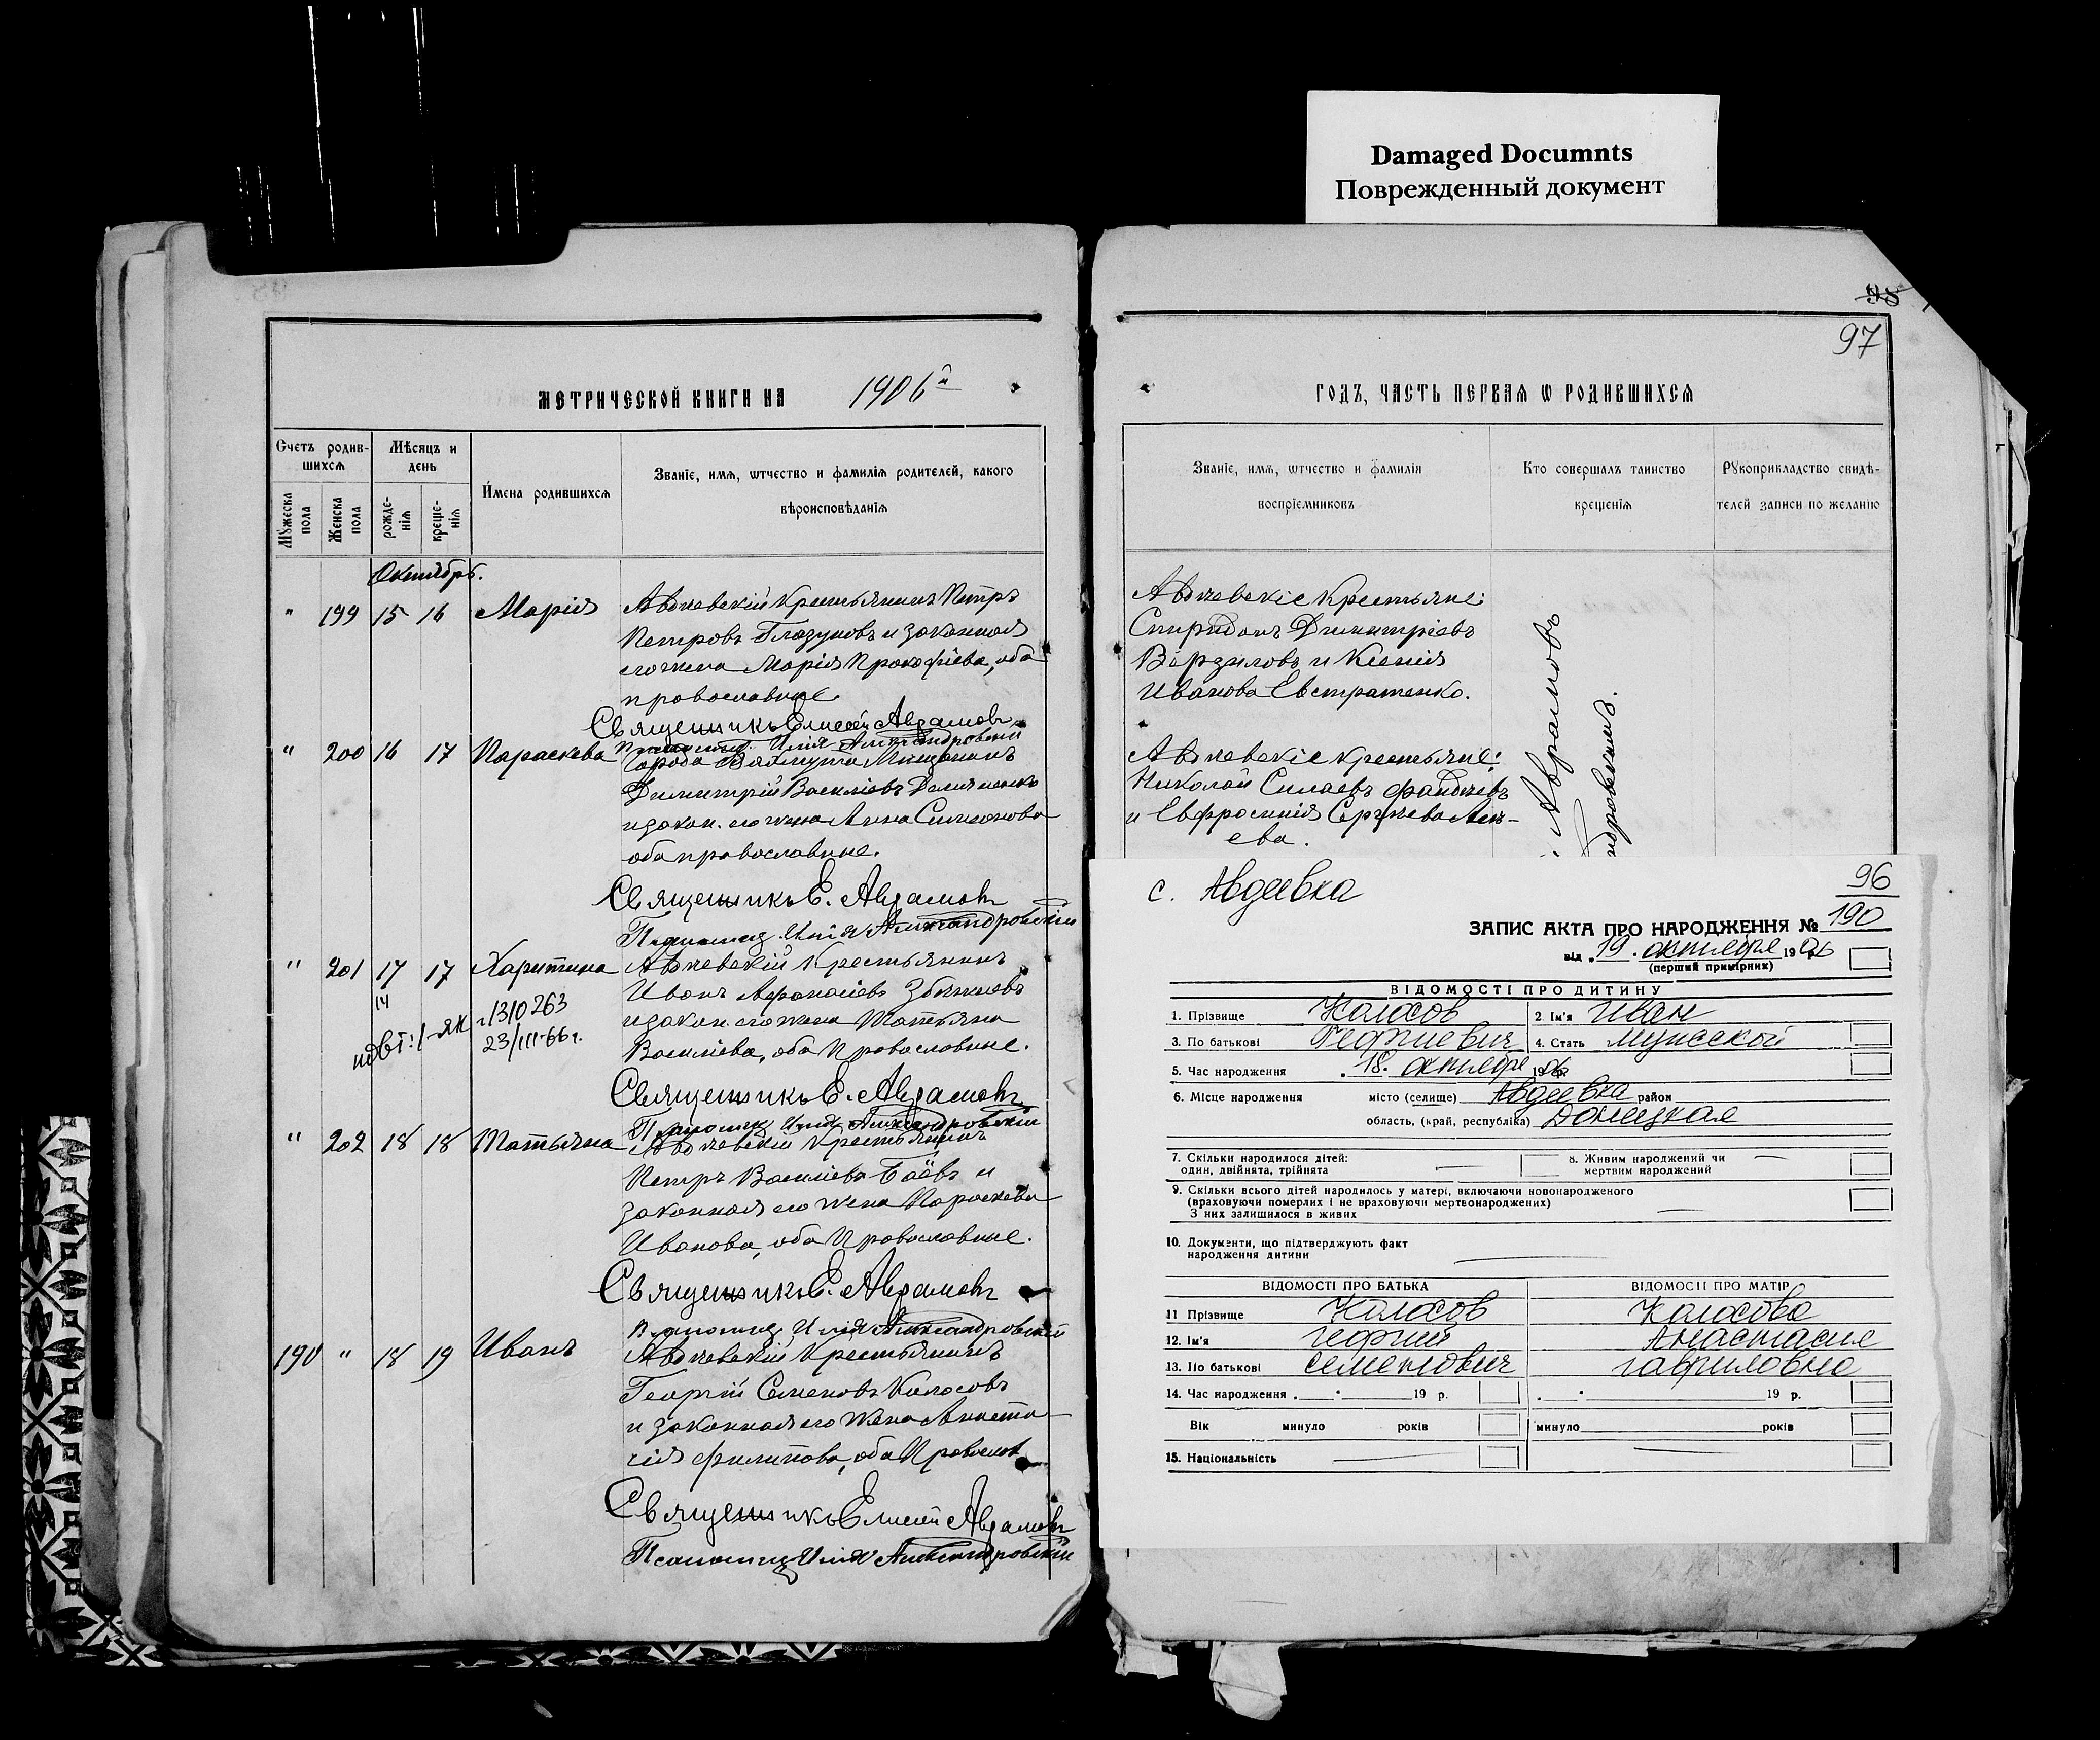 Damaged Documnts
Поврежденный документ
98
97
МЕТРИЧЕСКОЙ КНИГИ НА 1906й
Счетъ родив-
шихся
Мѣсяцъ и
день
Мꙋжеска пола
Женска пола
рожде-
нія
креще-
нія
Имена родившихся
Званіе, имѧ, ѿтчество и фамилія родителей, какого
вѣроисповѣданія
Октябрь.
" 199 15 16 Марія Авдѣевскій крестьянинъ Петръ
Петровъ Глазуновъ и законная
его жена Марія Прокофіева, оба
православные.
Священникъ Елисей Авраамовъ
Псаломщ. Илія Александровскій
" 200 16 17 Параскева Города Бахмута Мещанинъ
Димитрій Васильевъ
и закон. его жена Анна Симеонова
оба православные.
Священникъ Е. Авраамовъ
Псаломщ. Илія Александровскій
" 201 17 17 Харитина Авдѣевскій крестьянинъ
Иванъ Афанасіевъ
и закон. его жена Татьяна
Василіева, оба Православные.
14
310263
23/III-66г.
Священникъ Е. Авраамовъ
Псаломщ. Илія Александровскій
" 202 18 18 Татьяна Авдѣевскій крестьянинъ
Петръ Василіевъ Баёвъ и
законная его жена Параскева
Иванова, оба Православные.
Священникъ Е. Авраамовъ
Псаломщ. Илія Александровскій
190 " 18 19 Иванъ Авдѣевскій крестьянинъ
Георгій Семеновъ Колосовъ
и законная его жена Анаста
сія Филипова, оба Православ
Священникъ Елисей Авраамовъ
Псаломщ. Илія Александровскій
ГОДЪ, ЧАСТЬ ПЕРВАѦ Ѿ РОДИВШИХСѦ
Званіе, имѧ, ѿтчество и фамилія
воспріемниковъ
Кто совершалъ таинство
крещенія
Рꙋкоприкладство свидѣ-
телей записи по желанію
Авдѣевскіе крестьяне:
Спиридонъ Димитріевъ
Ворзиловъ и Ксенія
Иванова Евстратенко.
Авдѣевскіе крестьяне:
Николай Силаевъ Фандѣевъ
и Евфросинія Сергѣева
ева.
Авраамовъ
с. Авдеевка
96
190
ЗАПИС АКТА ПРО НАРОДЖЕННЯ №
від „19. октября 1906
(перший примірник)
ВІДОМОСТІ ПРО ДИТИНУ
1. Прізвище Колосов 2. Ім'я Иван
3. По батькові Георгиевич 4. Стать мужской
5. Час народження „18. октября 1906
6. Місце народження місто (селище) Авдеевка район
область, (край, республіка) Донецкая
7. Скільки народилося дітей:
один, двійнята, трійнята
8. Живим народжений чи
мертвим народжений
9. Скільки всього дітей народилось у матері, включаючи новонародженого
(враховуючи померлих і не враховуючи мертвонароджених)
З них залишилося в живих
10. Документи, що підтверджують факт
народження дитини
ВІДОМОСТІ ПРО БАТЬКА ВІДОМОСТІ ПРО МАТІР
11 Прізвище Колосов Колосова
12. Ім'я Георгий Анастасия
13. По батькові Семенович Гавриловна
14. Час народження 19 р. 19 р.
Вік минуло років минуло років
15. Національність